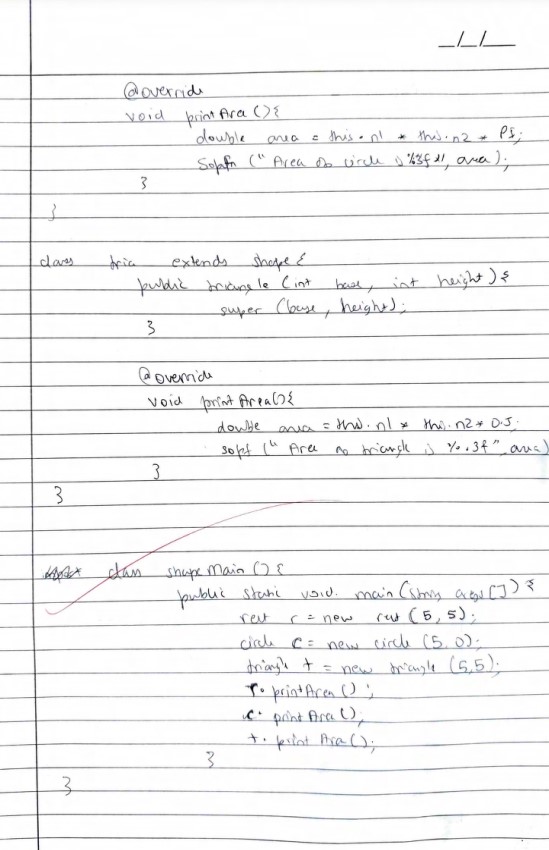 _/_/_
@override
void printArea(){
double area = this.n1 * this.n2 * PI;
Sopfn (" Area of circle is %3f", area);
}
}
class tria extends shape {
public triangle (int base, int height) {
super (base, height);
}
@override
void printArea(){
double area = this.n1 * this.n2 * 0.5;
sopf (" Area of triangle is %.3f", area)
}
}
class shapeMain () {
public static void. main (String args []) {
rect r = new rect (5, 5);
circle c = new circle (5,0);
triangle t = new triangle (5,5);
r. printArea () ;
c. print Area ();
t. print Area ();
}
}